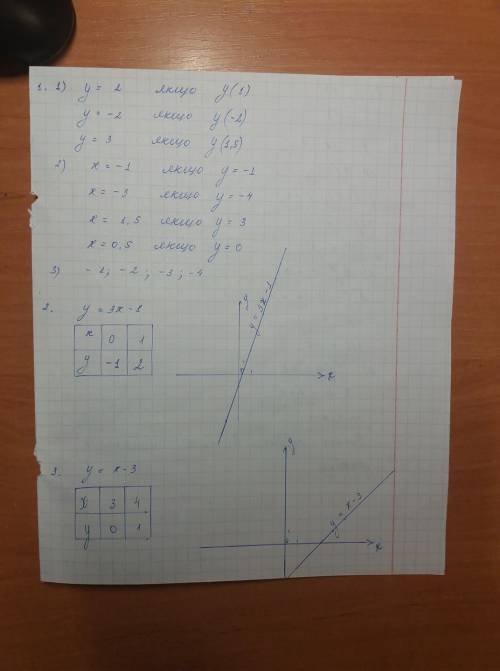 1. 1) y = 2 якщо y(1)
y = -2 якщо y(-2)
y = 3 якщо y(1,5)
2) x = -1 якщо y = -1
x = -3 якщо y = -4
x = 1,5 якщо y = 3
x = 0,5 якщо y = 0
3) -1; -2; -3; -4
2. y = 3x-1
x 0 1
y -1 2
y
y = 3x-1
x
3. y = x-3
x 3 4
y 0 1
y
y = x-3
x